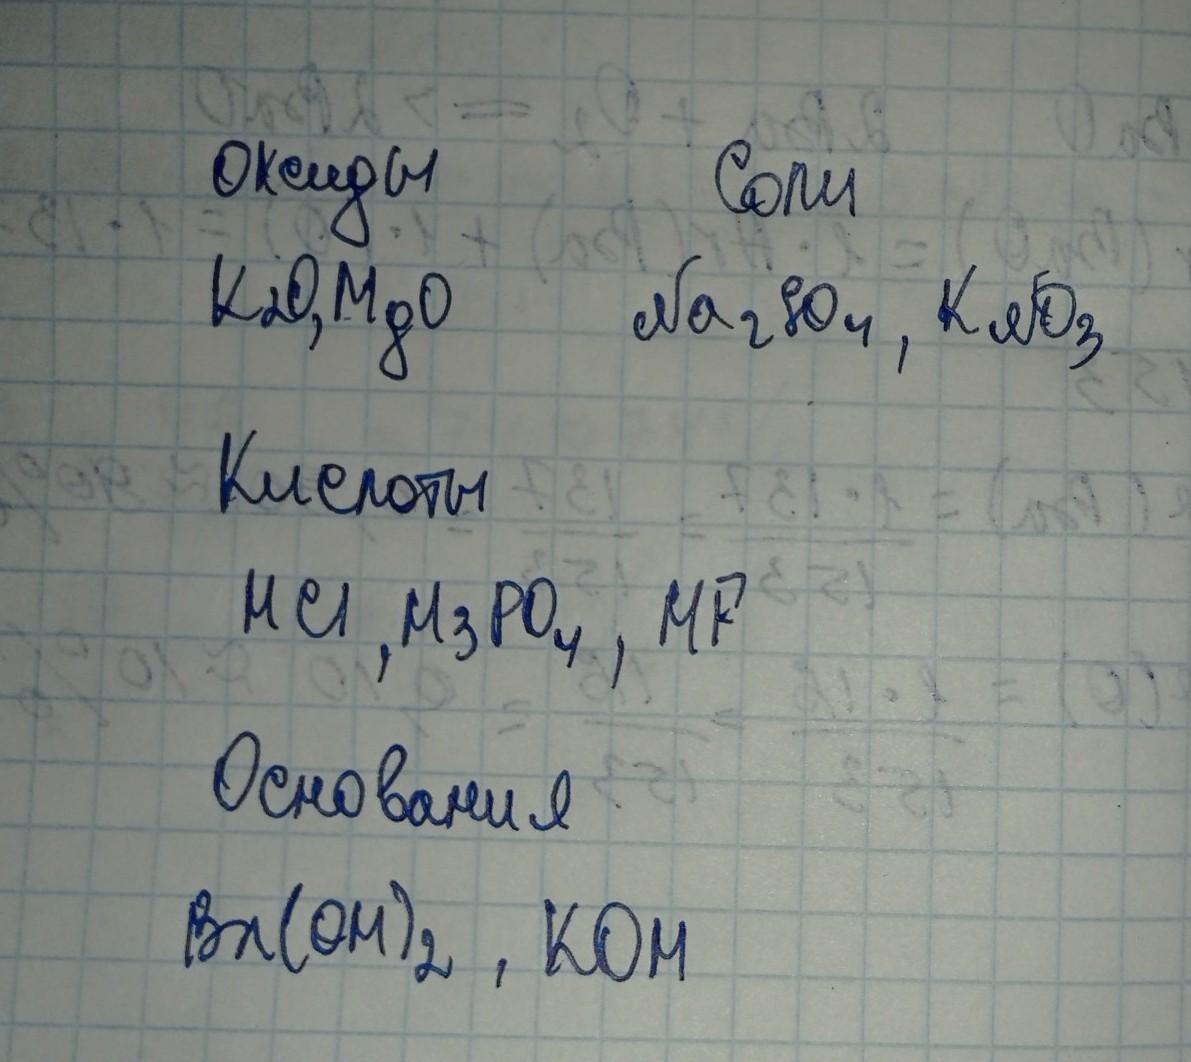 Оксиды Соли
K2O, MgO Na2SO4, KNO3
Кислоты
HCl, H3PO4, HF
Основания
Ba(OH)2, KOH